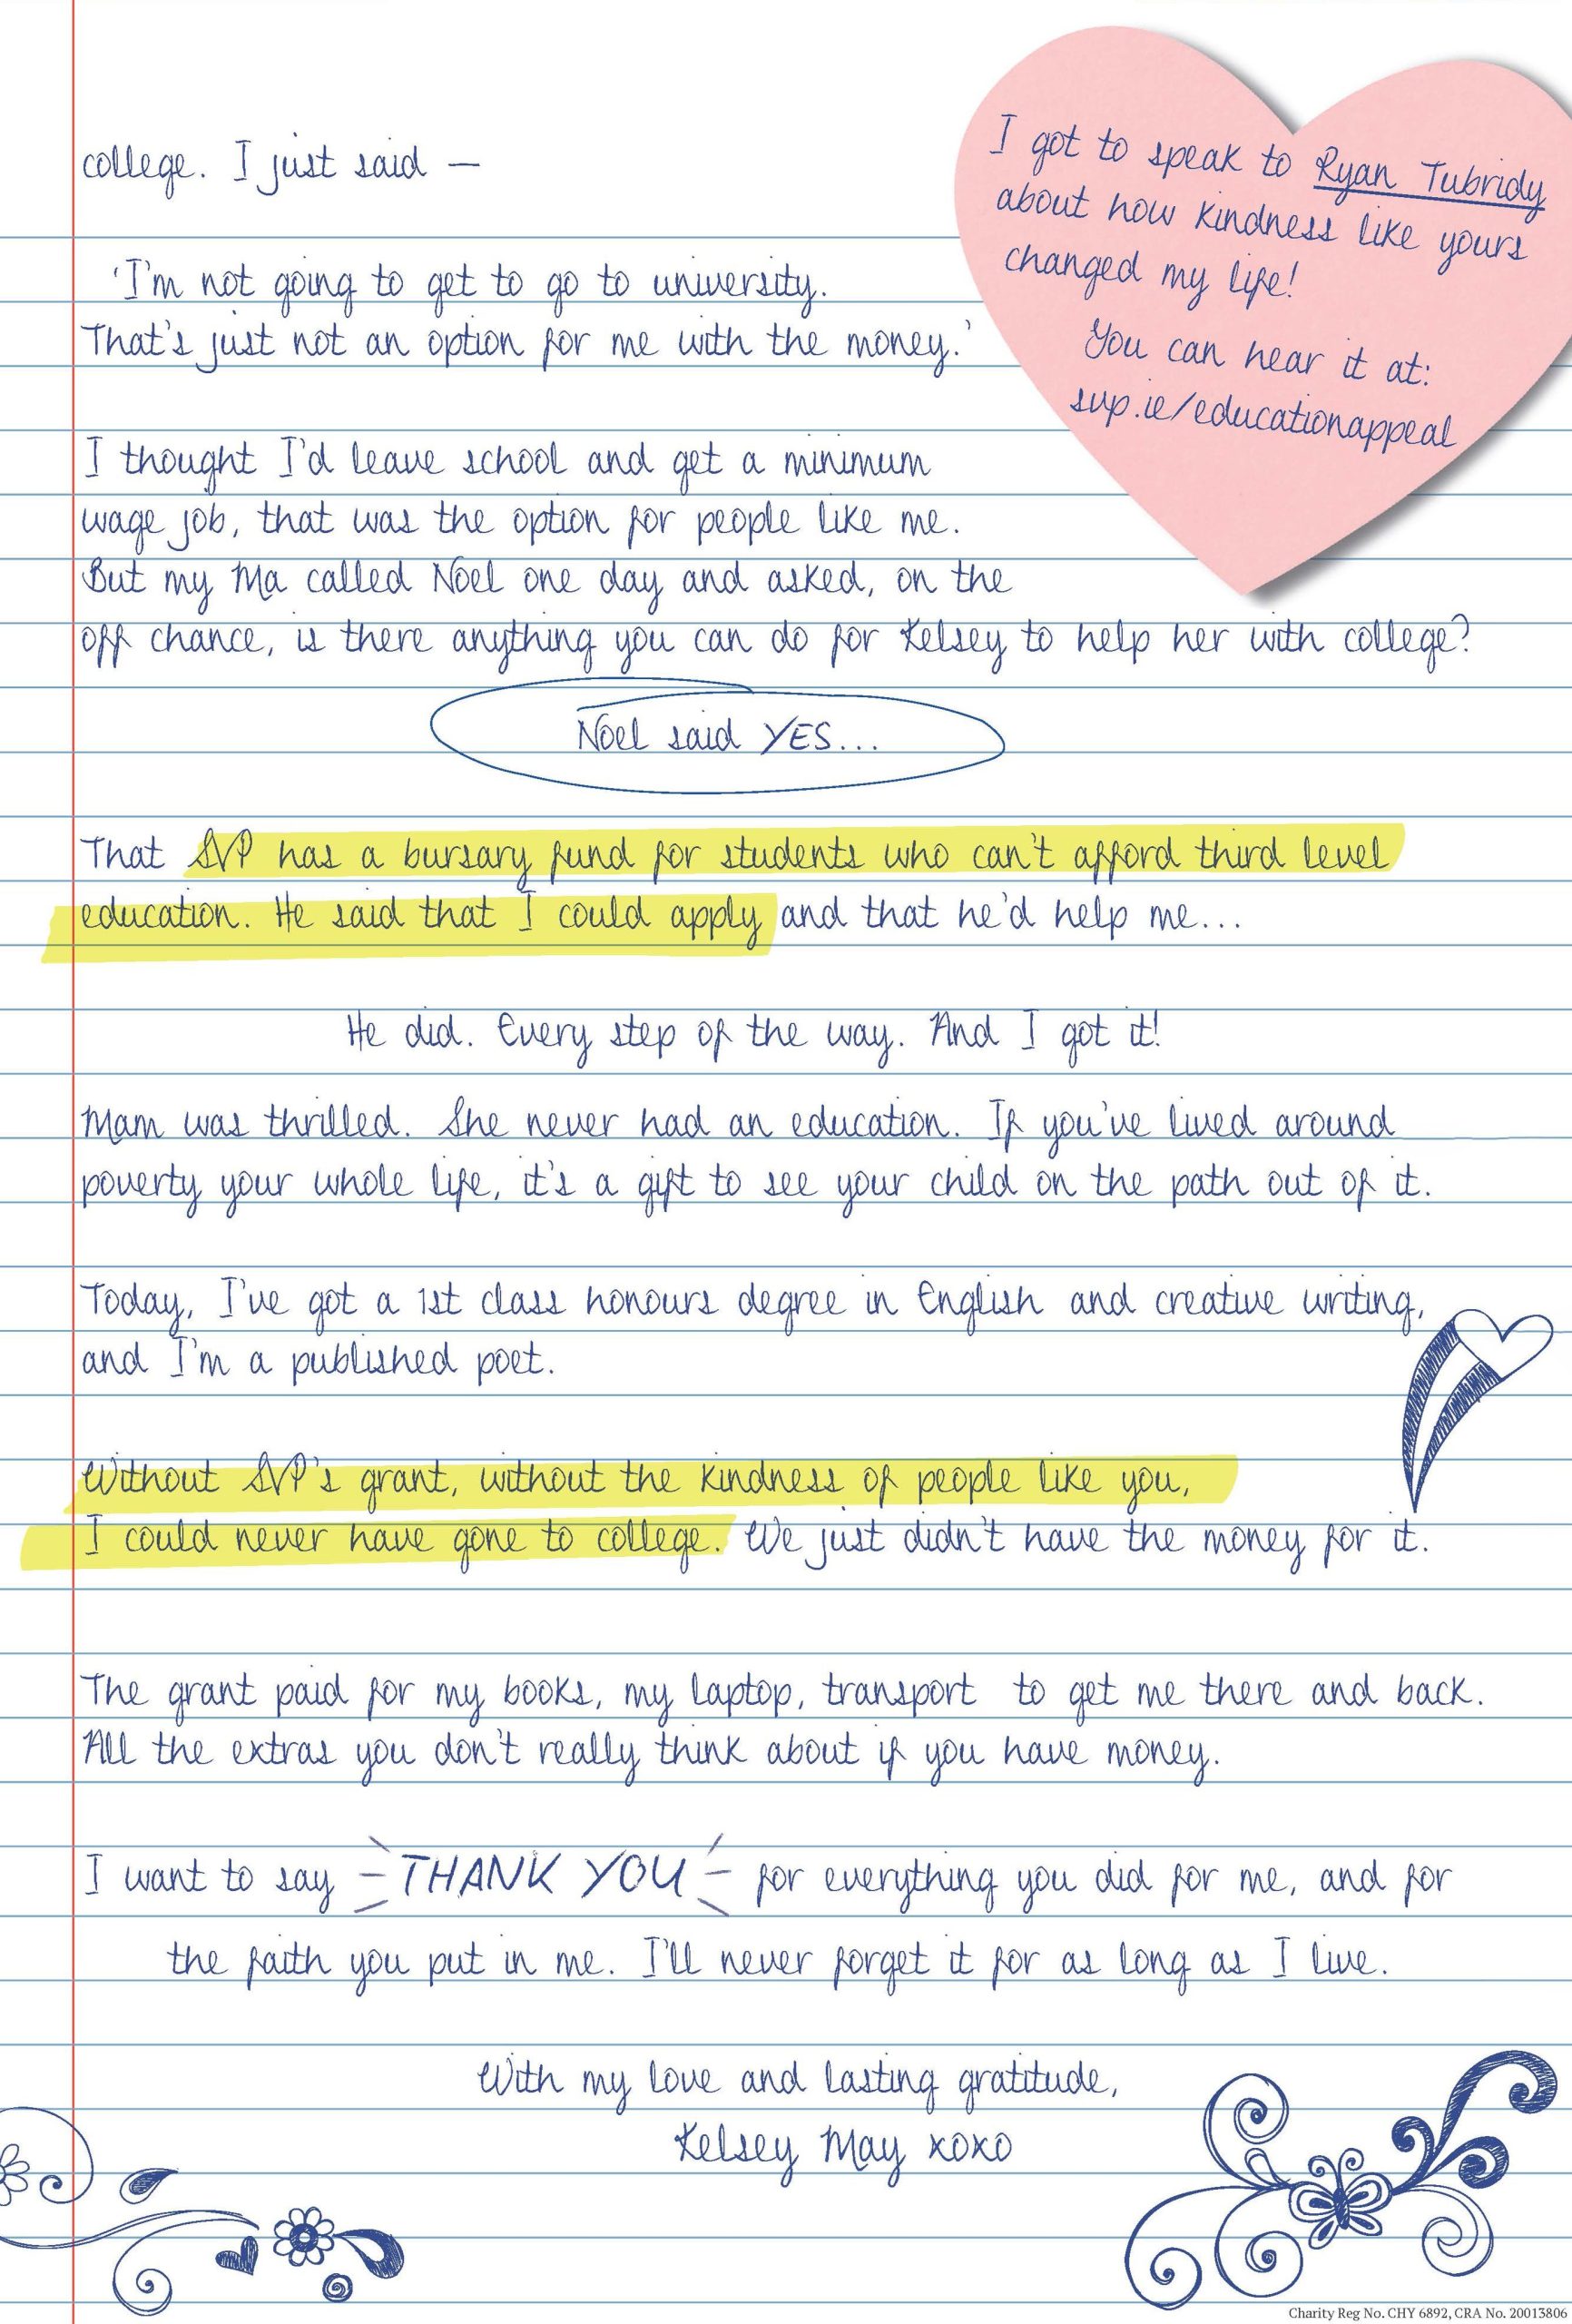 college. I just said –
I got to speak to Ryan Tubridy
about how kindness like yours
changed my life!
You can hear it at:
svp.ie/educationappeal
'I'm not going to get to go to university.
That's just not an option for me with the money.'
I thought I'd leave school and get a minimum
wage job, that was the option for people like me.
But my Ma called Noel one day and asked, on the
off chance, is there anything you can do for Kelsey to help her with college?
Noel said YES...
That SVP has a bursary fund for students who can't afford third level
education. He said that I could apply and that he'd help me...
He did. Every step of the way. And I got it!
Mam was thrilled. She never had an education. If you've lived around
poverty your whole life, it's a gift to see your child on the path out of it.
Today, I've got a 1st class honours degree in English and creative writing,
and I'm a published poet.
Without SVP's grant, without the kindness of people like you,
I could never have gone to college. We just didn't have the money for it.
The grant paid for my books, my laptop, transport to get me there and back.
All the extras you don't really think about if you have money.
I want to say THANK YOU for everything you did for me, and for
the faith you put in me. I'll never forget it for as long as I live.
With my love and lasting gratitude,
Kelsey May xoxo
Charity Reg No. CHY 6892, CRA No. 20013806